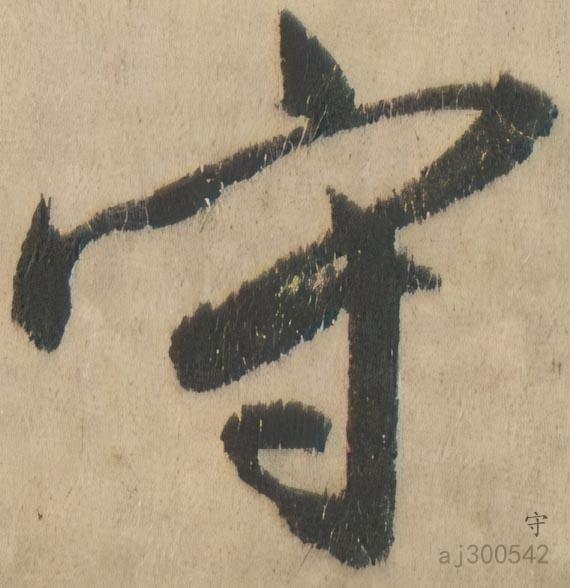 守
守
aj300542